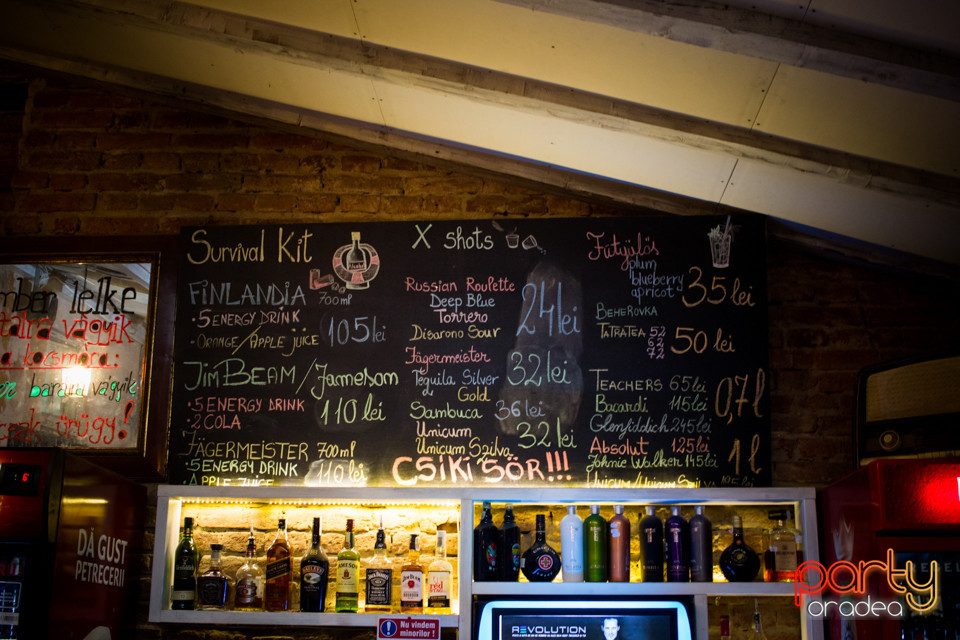 Survival Kit
FINLANDIA 700ml
• 5 ENERGY DRINK
• ORANGE/APPLE JUICE 105 lei
JIM BEAM/Jameson
• 5 ENERGY DRINK
• 2 COLA
110 lei
JÄGERMEISTER 700ml
• 5 ENERGY DRINK
APPLE JUICE
110 lei
X SHOTS
Russian Roulette
Deep Blue
Torrero
Disarono Sour
24 lei
Jägermeister
Tequila Silver
Gold
32 lei
Sambuca 36 lei
Unicum
Unicum Szilva
32 lei
CSIKI SÖR!!!
Fütyülős
plum
blueberry
apricot
35 lei
BEHEROVKA
TATRATEA 52
62
72
50 lei
TEACHERS 65 lei
Bacardi 115 lei
Glenfiddich 245 lei
0,7l
Absolut 125 lei
Johnie Walker 145 lei
1l
Unicum/Unicum Szilva 195 lei
mber lelke
vágyik
a kocsmára:
barátra vágyik
csak ürügy!
DĂ GUST
PETRECERII
Nu vindem
minorilor!
REVOLUTION
JIM BEAM
party
oradea